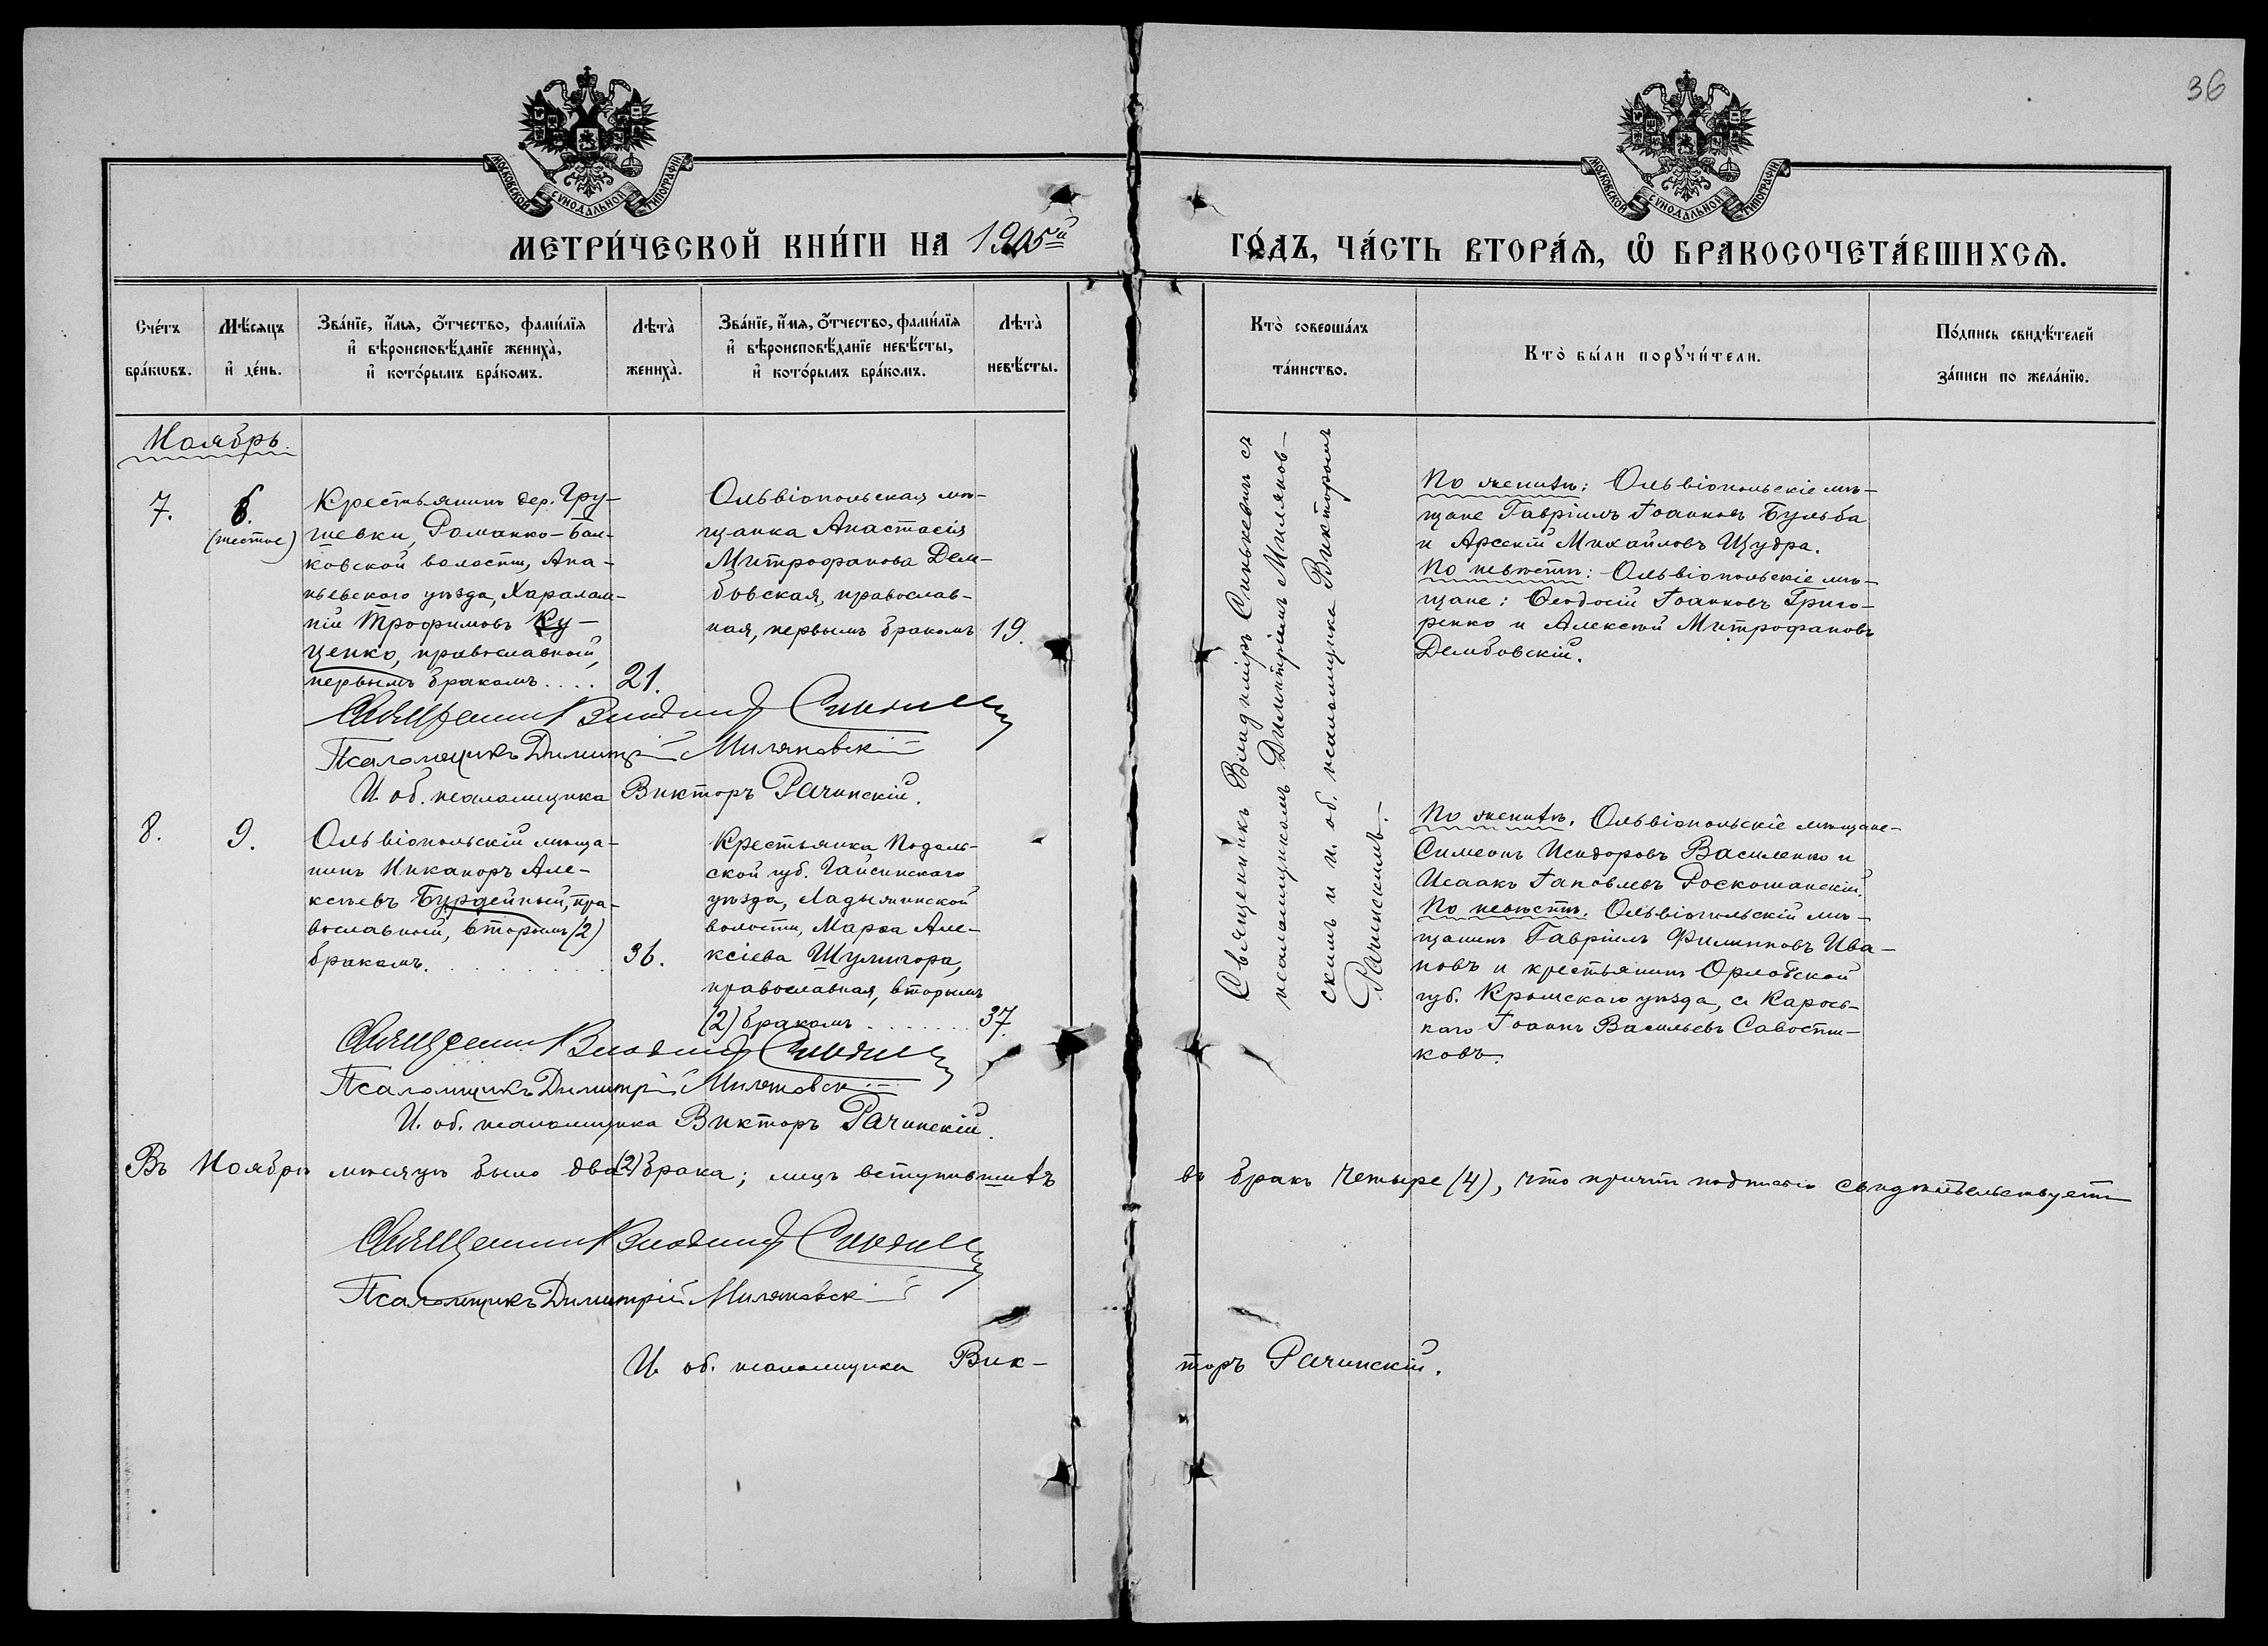 36
МОСКОВСКОЙ СѴНОДАЛЬНОЙ ТИПОГРАФІИ
МОСКОВСКОЙ СѴНОДАЛЬНОЙ ТИПОГРАФІИ
МЕТРИ́ЧЕСКОЙ КНИ́ГИ НА 1905й ГО́ДЪ, ЧА́СТЬ ВТОРА́Ѧ, Ѡ҆ БРАКОСОЧЕТА́ВШИХСѦ.
Сче́тъ
бра́кѡвъ.
Мѣ́сяцъ
и҆ де́нь.
Зва́нїе, и҆́мя, ѻ҆́тчество, фами́лїя
и҆ вѣроисповѣ́данїе жениха̀,
и҆ кото́рымъ бра́комъ.
Лѣта̀
жениха̀.
Зва́нїе, и҆́мя, ѻ҆́тчество, фами́лїя
и҆ вѣроисповѣ́данїе невѣ́сты,
и҆ кото́рымъ бра́комъ.
Лѣта̀
невѣ́сты.
Кто̀ соверша́лъ
та́инство.
Кто̀ бы́ли порꙋчи́тели.
По́дпись свидѣ́телей
за́писи по жела́нїю.
Ноябрь.
7.
6.
(шестое)
Крестьянинъ дер. Гру-
шевки, Романко-Бал-
ковской волости, Ана-
ньевскаго уѣзда, Харалам-
пій Трофимовъ Ку-
ценко, православный,
первымъ бракомъ....
21.
Ольвіопольская мѣ-
щанка Анастасія
Митрофанова Дем-
бовская, православ-
ная, первымъ бракомъ
19.
Священникъ Владиміръ Синькевичъ съ
псаломщикомъ Димитріемъ Миляновс-
скимъ и и. об. псаломщика Викторомъ
Рачинскимъ.
По женихѣ: Ольвіопольскіе мѣ-
щане Гавріилъ Іоанновъ Бульба
и Арсеній Михайловъ Щудра.
По невѣстѣ: Ольвіопольскіе мѣ-
щане: Ѳеодосій Іоанновъ Григо-
ренко и Алексѣй Митрофановъ
Дембовскій.
Священникъ Владиміръ Синькевичъ
Псаломщикъ Димитрій Миляновскій
И. об. псаломщика Викторъ Рачинскій.
8.
9.
Ольвіопольскій мѣща-
нинъ Никаноръ Але-
ксѣевъ Бурдейный, пра-
вославный, вторымъ (2)
бракомъ.........
36.
Крестьянка Подоль-
ской губ. Гайсинскаго
уѣзда, Ладыжинской
волости, Марѳа Але-
ксіева Шумигора,
православная, вторымъ
(2) бракомъ.......
37.
По женихѣ. Ольвіопольскіе мѣщане-
Симеонъ Исидоровъ Василенко и
Исаакъ Іаковлевъ Роскошанскій.
По невѣстѣ. Ольвіопольскій мѣ-
щанинъ Гавріилъ Филипповъ Ива-
новъ и крестьянинъ Орловской
губ. Кромскаго уѣзда, с.
Іоаннъ Васильевъ Савости-
ковъ.
Священникъ Владиміръ Синькевичъ
Псаломщикъ Димитрій Миляновскій
И. об. псаломщика Викторъ Рачинскій.
Въ Ноябрѣ мѣсяцѣ было два (2) брака; лицъ вступившихъ въ бракъ четыре (4), что причтъ подписью свидѣтельствуетъ
Священникъ Владиміръ Синькевичъ
Псаломщикъ Димитрій Миляновскій
И. об. псаломщика Вик-
торъ Рачинскій.